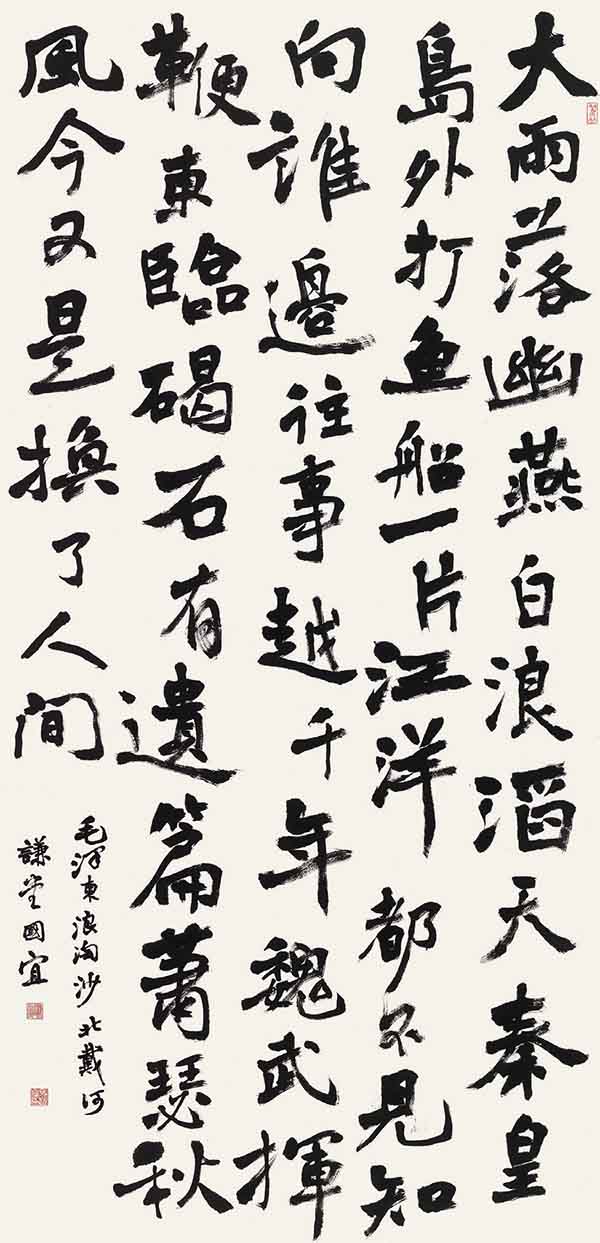 大雨落幽燕白浪滔天秦皇
島外打鱼船一片汪洋都不見知
向誰邊往事越千年魏武揮
鞭東臨碣石有遺篇蕭瑟秋
風今又是換了人間
毛泽東浪淘沙北戴河
謙堂國宜